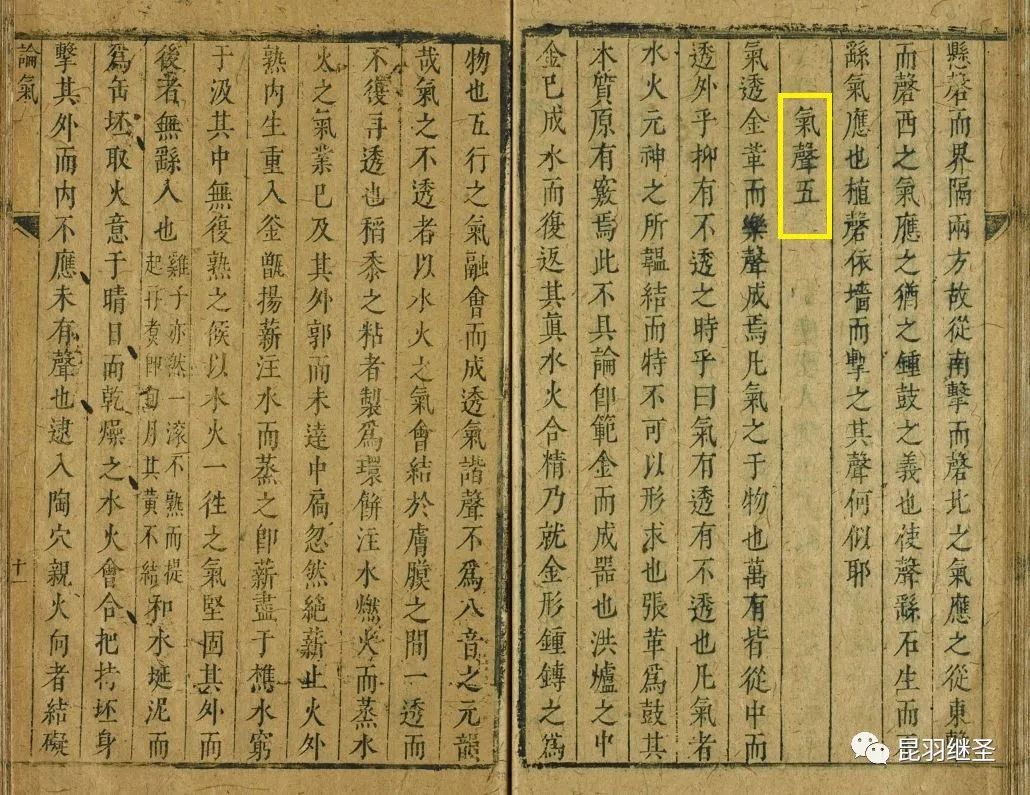 懸磬而界隔兩方故從南擊而磬北之氣應之從東擊
而磬西之氣應之猶之鍾鼓之義也使聲繇石生而
繇氣應也植磬依墻而擊之其聲何似耶
氣聲五
氣透金革而樂聲成焉凡氣之于物也萬有皆從中而
透外乎抑有不透之時乎曰氣有透有不透也凡氣者
水火元神之所韞結而特不可以形求也張革為鼓其
木質原有竅焉此不具論卽範金而成器也洪爐之中
金已成水而復返其真水火合精乃就金形鍾鏄之為
物也五行之氣融會而成透氣諧聲不為八音之元韻
哉氣之不透者以水火之氣會結於膚膜之間一透而
不復再透也稻黍之粘者製為環餅注水燃火而蒸水
火之氣業已及其外郭而未達中扃忽然絕薪止火外
熟內生重入釜甑揚薪注水而蒸之卽薪盡于樵水窮
于汲其中無復熟之候以水火一徃之氣堅固其外而
後者無繇入也雞子亦然一滾不熟而提起再煮卽旬月其黃不結和水埏泥而
為缶坯取火意于晴日而乾燥之水火會合把持坯身
擊其外而內不應未有聲也逮入陶穴親火向者結礙
論氣
十一
昆羽继圣